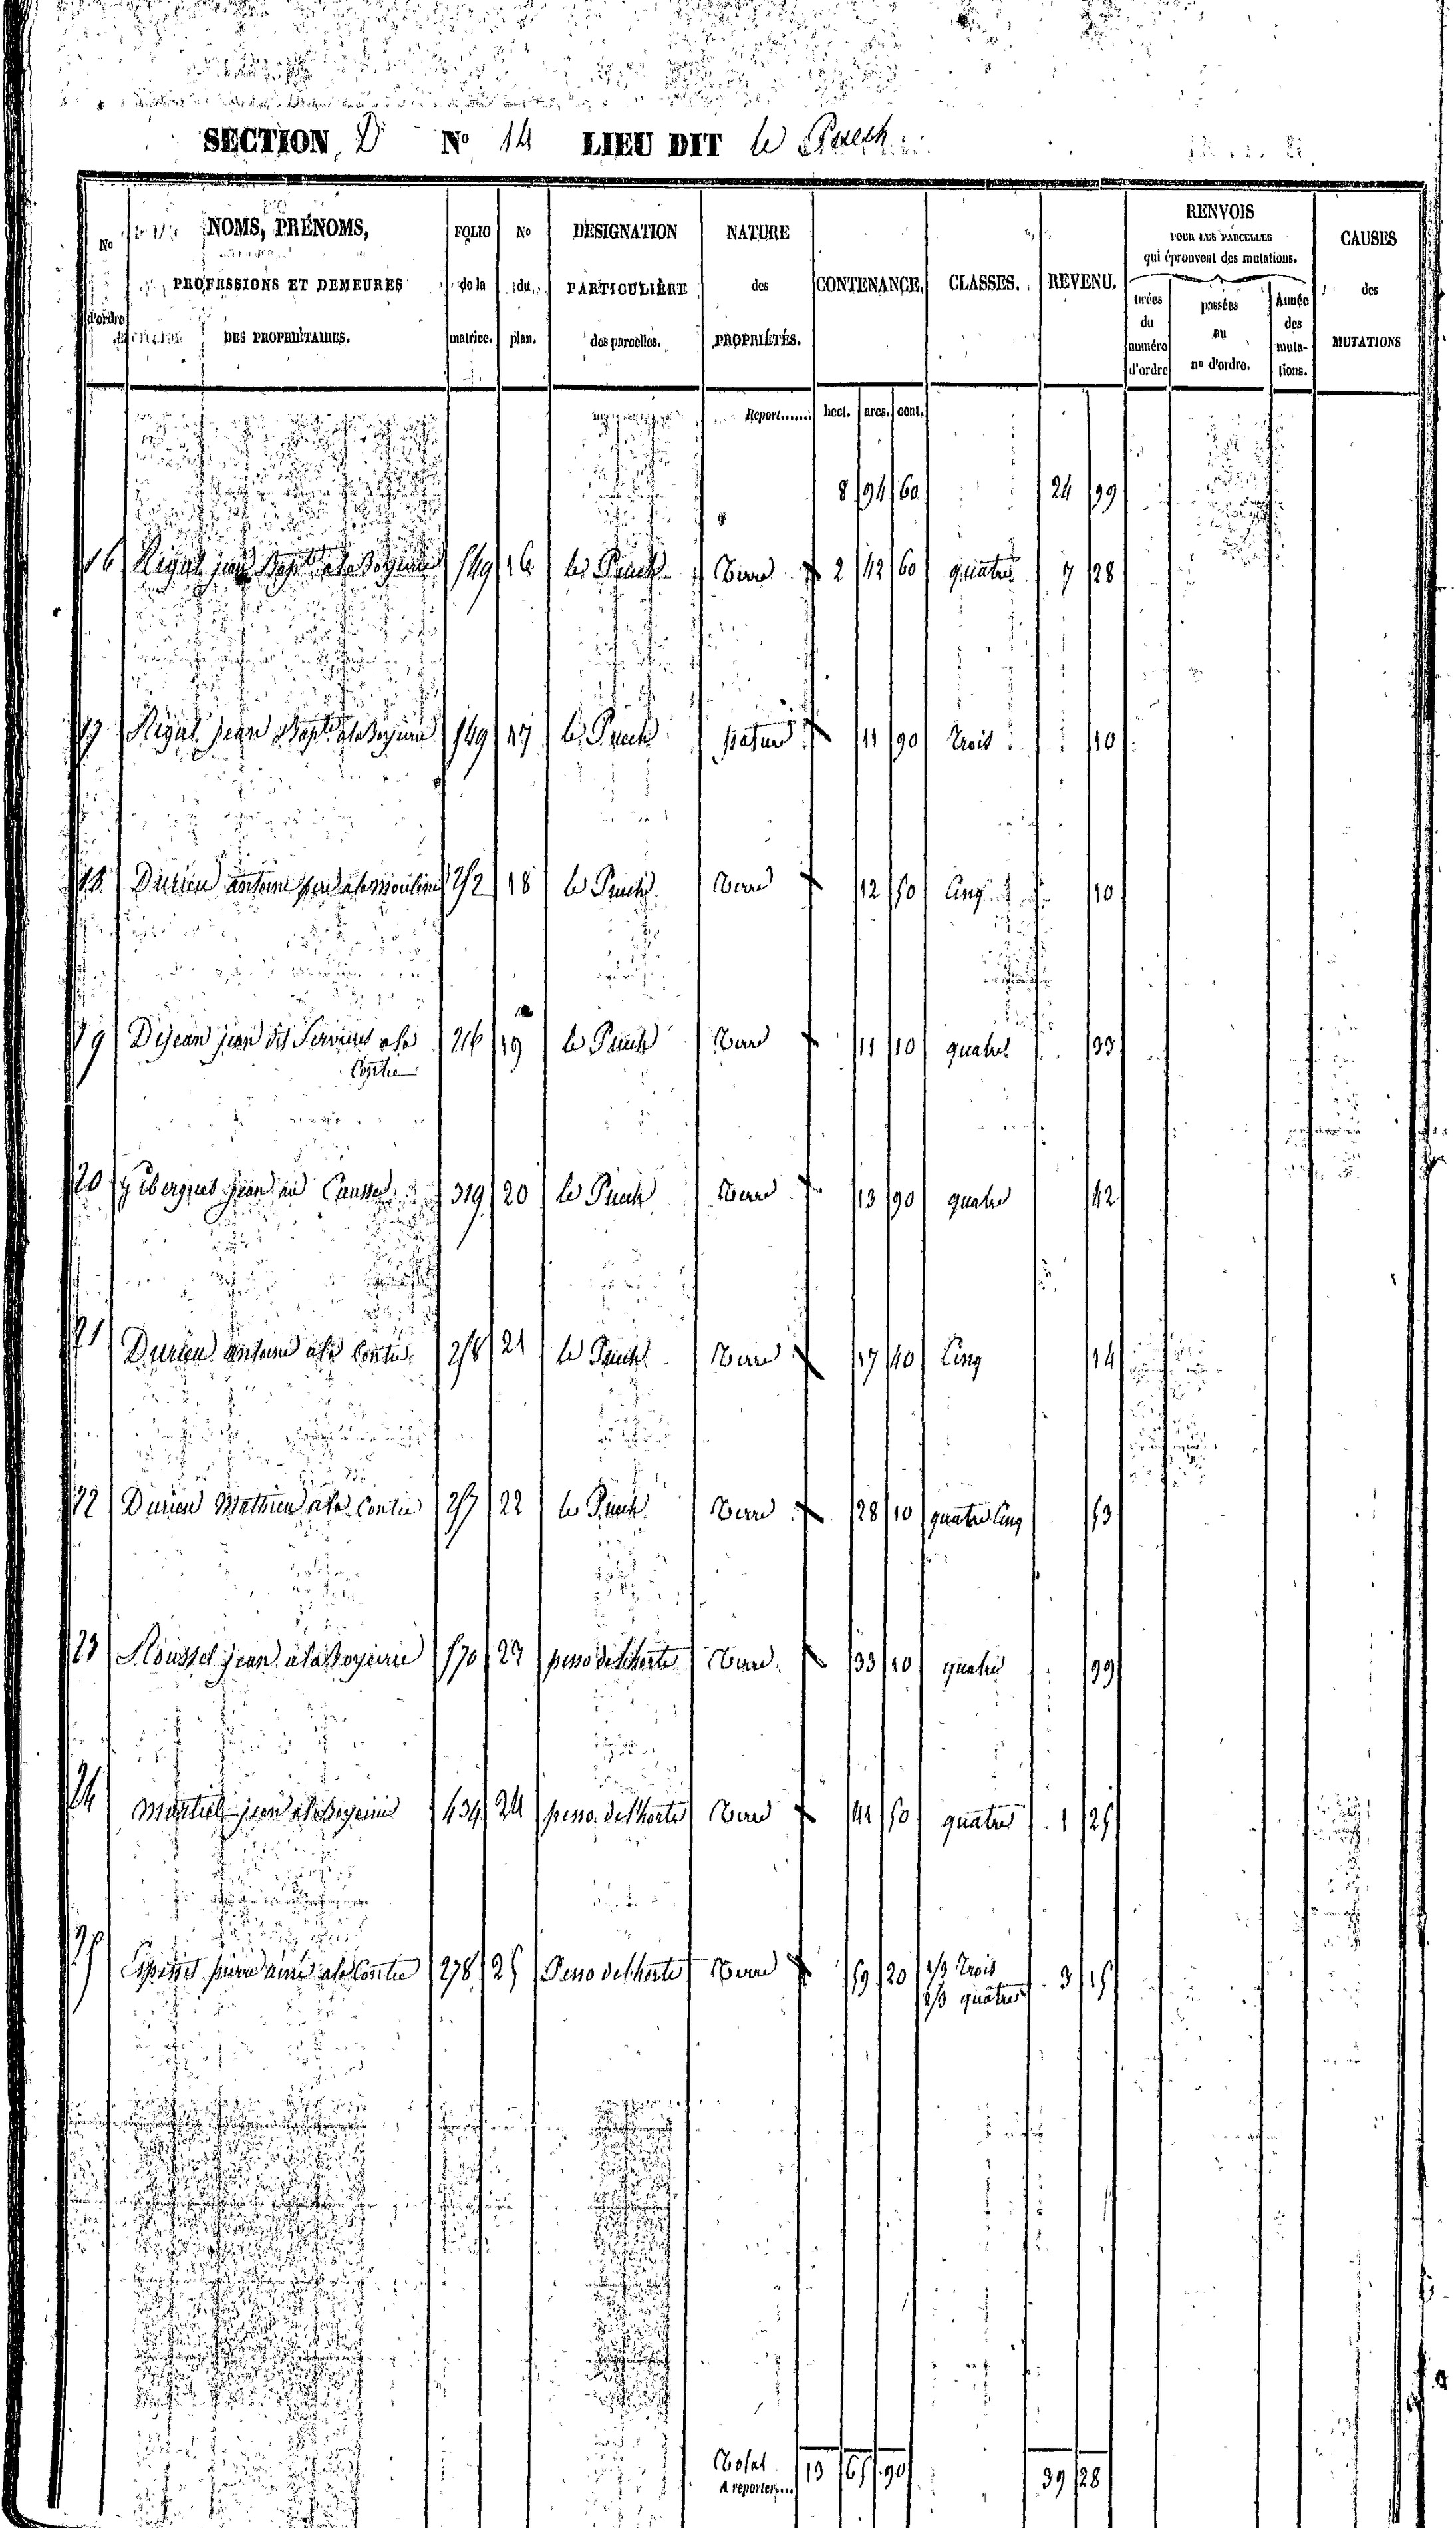 SECTION D No 14 LIEU DIT le Puech
No d'ordre
NOMS, PRÉNOMS,
PROFESSIONS ET DEMEURES
DES PROPRIÉTAIRES.
FOLIO de la matrice.
No du plan.
DÉSIGNATION PARTICULIÈRE des parcelles.
NATURE des PROPRIÉTÉS.
CONTENANCE.
CLASSES.
REVENU.
RENVOIS
POUR LES PARCELLES
qui éprouvent des mutations.
tirées du numéro d'ordre
passées au no d'ordre.
Année des muta- tions.
CAUSES des MUTATIONS
Report....... hect. ares. cent.
8 94 60 24 99
16 Rigal jean Bapte à la Boyerie 549 16 le Puech Terre 2 42 60 quatre 7 28
17 Rigal jean Bapt à la Boyerie 549 17 le Puech pature 11 90 trois 10
18 Durieu antoine père à la Mouline 252 18 le Puech Terre 12 50 Cinq 10
19 Dejean jean des Servieres a la 216 19 le Puech Terre 11 10 quatre 33
Contie
20 Gibergues jean au Causse 319 20 le Puech Terre 13 90 quatre 42
21 Durieu antoine a la Contie 258 21 le Puech Terre 17 40 Cinq 14
22 Durieu Mathieu a la Contie 257 22 le Puech Terre 28 10 quatre Cinq 53
23 Roussel jean à la Boyerie 570 23 pesso de l'horte Terre 33 10 quatre 99
24 Martiel jean a la Boyerie 434 24 pesso de l'horte Terre 41 50 quatre 1 25
25 pierre ainé a la Contie 278 25 Pesso de l'horte Terre 59 20 1/3 trois 3 15
2/3 quatre
Total
A reporter.... 13 65 90 39 28